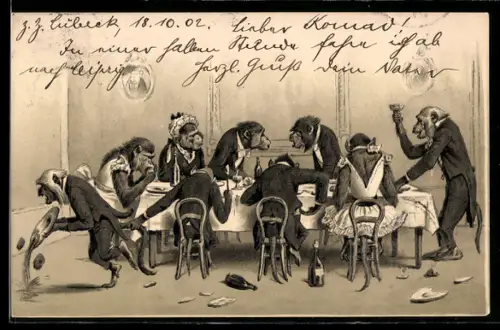 z. Z. Lübeck, 18.10.02. Lieber Konrad!
In einer halben Stunde fahre ich ab
nach Leipzig. Herzl. Gruß Dein Vater